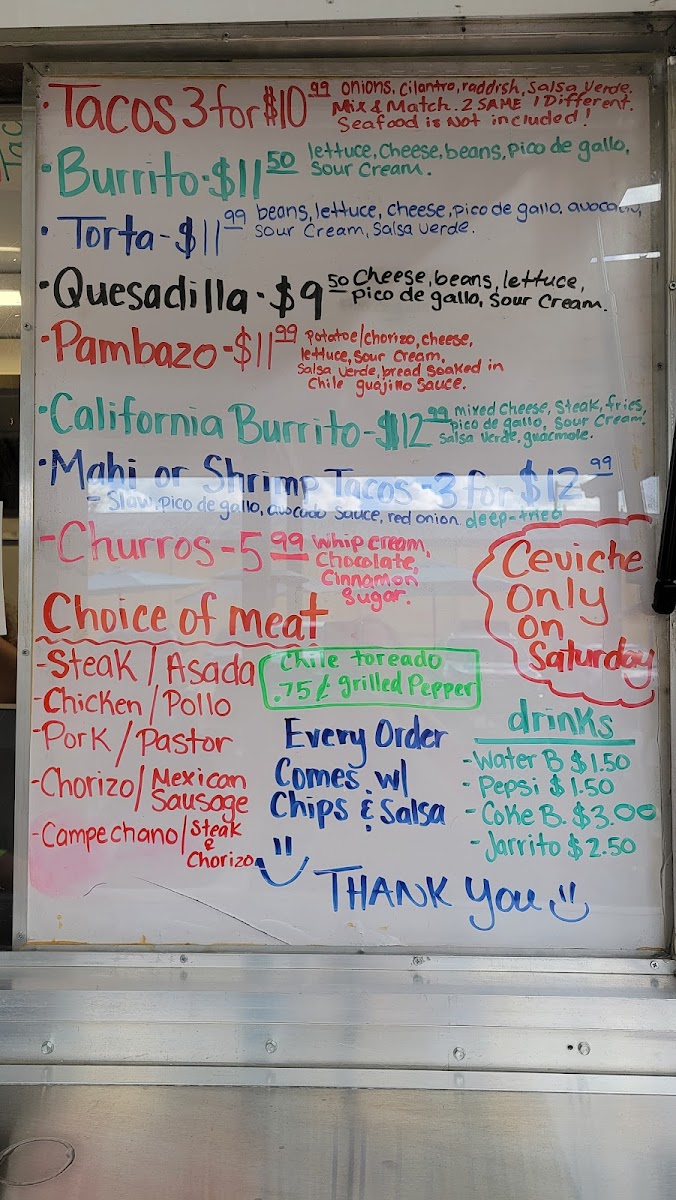 · Tacos 3 for $10 99 onions, cilantro, raddish, salsa verde.
Mix & Match. 2 SAME 1 Different.
Seafood is Not included!
· Burrito - $11 50 lettuce, cheese, beans, pico de gallo,
sour cream.
· Torta - $11 99 beans, lettuce, cheese, pico de gallo, avocado,
sour cream, salsa verde.
· Quesadilla - $9 50 cheese, beans, lettuce,
pico de gallo, sour cream.
· Pambazo - $11 99 potatoe/chorizo, cheese,
lettuce, sour cream,
salsa verde, bread soaked in
chile guajillo sauce.
· California Burrito - $12 99 mixed cheese, steak, fries,
pico de gallo, sour cream
salsa verde, guacmole.
· Mahi or Shrimp Tacos - 3 for $12 99
- Slaw, pico de gallo, avocado sauce, red onion. deep-fried
- Churros - 5 99 whip cream,
chocolate,
cinnamon
sugar.
Ceviche
only
on
Saturday
Choice of meat
- Steak / Asada
- Chicken / Pollo
- Pork / Pastor
- Chorizo / Mexican
Sausage
- Campechano / Steak
&
Chorizo
chile toreado
.75¢ grilled Pepper
Every Order
Comes w/
Chips & Salsa
drinks
- Water B $1.50
- Pepsi $1.50
- Coke B. $3.00
- Jarrito $2.50
THANK you